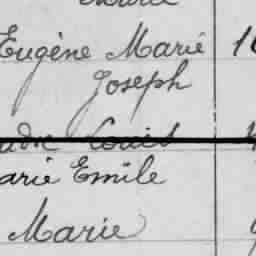 Eugène Marie 16
Joseph
Louis
arie Emile
Marie